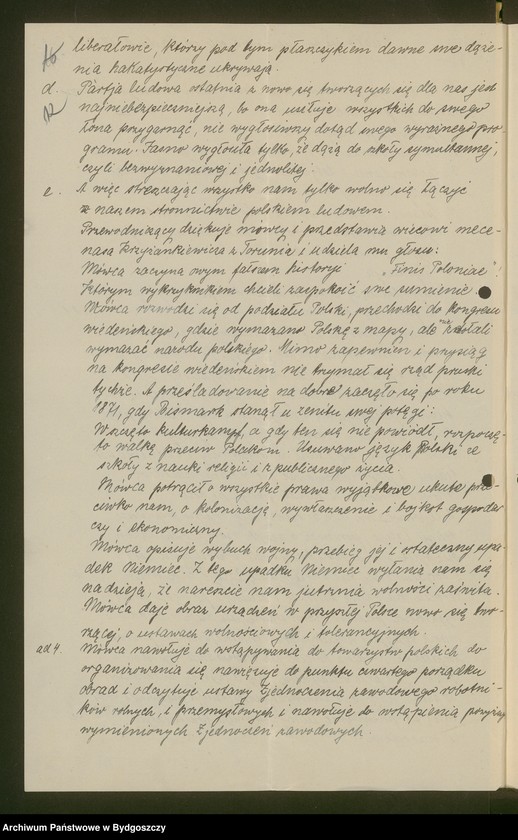 liberałowie, którzy pod tym płaszczykiem dawne swe dąże-
nia hakatystyczne ukrywają.
d. Partja ludowa ostatnia z nowo się tworzących się dla nas jest
najniebezpieczniejszą, bo ona usiłuje wszystkich do swego
łona przygarnąć, nie wygłosiwszy dotąd swego wyraźnego pro-
gramu. Jasno wygłosiła tylko, że dążą do szkoły symultannej,
czyli bezwyznaniowej i jednolitej.
e. A więc streszczając wszystko nam tylko wolno się łączyć
z naszem stronnictwie polskiem ludowem.
Przewodniczący dziękuje mówcy i przedstawia wiecowi mece-
nasa Krzyżankiewicza z Torunia i udziela mu głosu:
Mówca zaczyna owym fałszem historji „Finis Poloniae"!
którym wykrzyknikiem chcieli zaspokoić swe sumienie.
Mówca rozwodzi się od podziału Polski, przechodzi do kongresu
wiedeńskiego, gdzie wymazano Polskę z mapy, ale nie zdołali
wymazać narodu polskiego. Mimo zapewnień i przysiąg
na kongresie wiedeńskiem nie trzymał się rząd pruski
tychże. A prześladowanie na dobre zaczęło się po roku
1871, gdy Bismark stanął u zenitu swej potęgi:
Wszczęto kulturkampf, a gdy ten się nie powiódł, rozpoczę-
to walkę przeciw Polakom. Usuwano język Polski ze
szkoły z nauki religii i z publicznego życia.
Mówca potrącił o wszystkie prawa wyjątkowe ukute prze-
ciwko nam, o kolonizację, wywłaszczenie i bojkot gospodar
czy i ekonomiczny.
Mówca opisuje wybuch wojny, przebieg jej i ostateczny upa-
dek Niemiec. Z tego upadku Niemiec wyłania nam się
nadzieja, że nareszcie nam jutrznia wolności zaświta.
Mówca daje obraz urządzeń w przyszłej Polsce nowo się two-
rzącej, o ustawach wolnościowych i tolerancyjnych.
ad 4. Mówca nawołuje do wstępywania do towarzystw polskich do
organizowania się nawięzuje do punktu czwartego porządku
obrad i odczytuje ustawy Zjednoczenia zawodowego robotni-
ków rolnych, i przemysłowych i nawołuje do wstąpienia powyżej
wymienionych Zjednoczeń zawodowych.
Archiwum Państwowe w Bydgoszczy